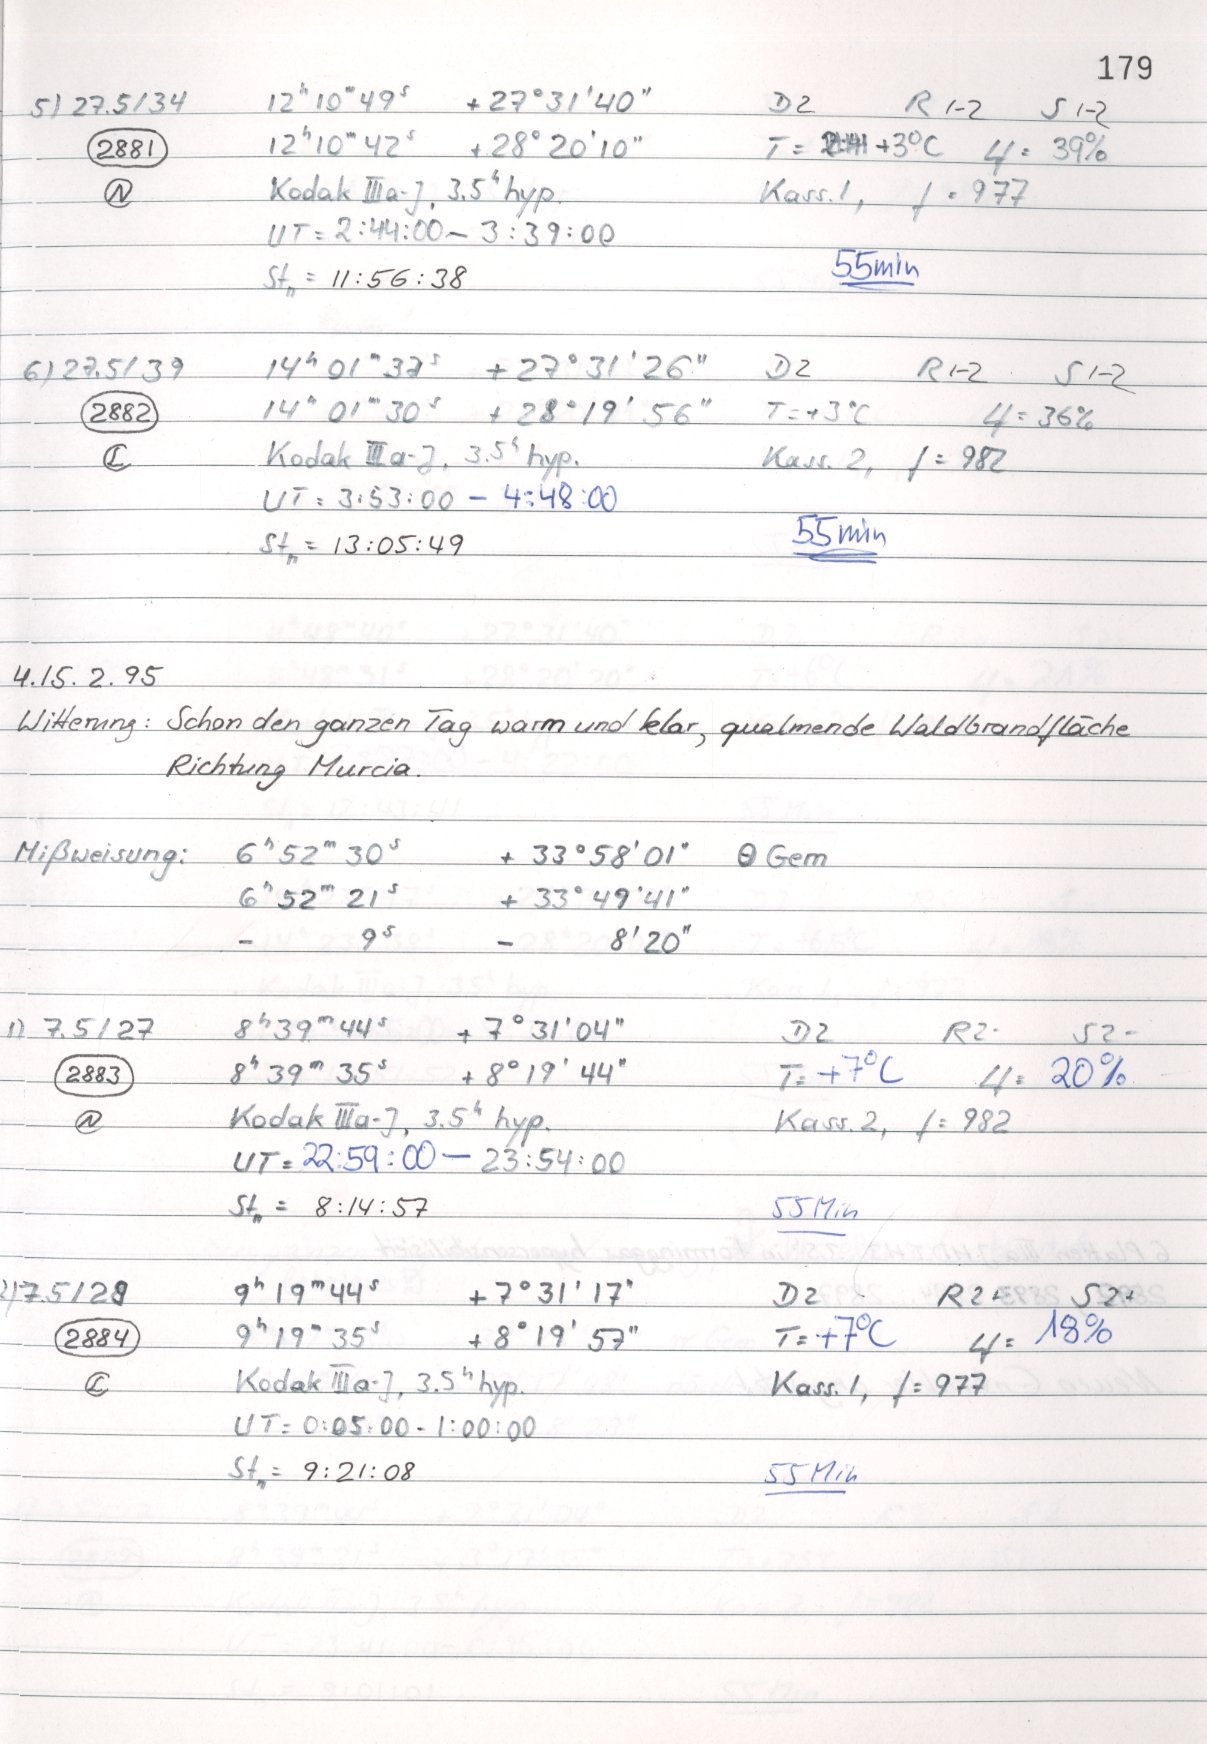 179
5) 27.5/34 12ʰ10ᵐ49ˢ +27°31'40" D2 R 1-2 S 1-2
2881 12ʰ10ᵐ42ˢ +28°20'10" T= +3°C φ= 39%
N Kodak IIIa-J, 3.5ʰ hyp. Kass.1, f=977
UT=2:44:00 – 3:39:00
Stₙ = 11:56:38 55min
6) 27.5/39 14ʰ01ᵐ37ˢ +27°31'26" D2 R 1-2 S 1-2
2882 14ʰ01ᵐ30ˢ +28°19'56" T=+3°C φ=36%
C Kodak IIIa-J, 3.5ʰ hyp. Kass. 2, f=982
UT= 3:53:00 – 4:48:00
Stₙ = 13:05:49 55min
4.15.2.95
Witterung: Schon den ganzen Tag warm und klar, qualmende Waldbrandfläche
Richtung Murcia.
Mißweisung: 6ʰ52ᵐ30ˢ +33°58'01" θ Gem
6ʰ52ᵐ21ˢ +33°49'41"
- 9ˢ - 8'20"
1) 7.5/27 8ʰ39ᵐ44ˢ +7°31'04" D2 R2- S2-
2883 8ʰ39ᵐ35ˢ +8°19'44" T=+7°C φ= 20%
N Kodak IIIa-J, 3.5ʰ hyp. Kass. 2, f=982
UT=22:59:00 – 23:54:00
Stₙ = 8:14:57 55 Min
2) 7.5/29 9ʰ19ᵐ44ˢ +7°31'17" D2 R2+ S2+
2884 9ʰ19ᵐ35ˢ +8°19'57" T=+7°C φ= 18%
C Kodak IIIa-J, 3.5ʰ hyp. Kass.1, f=977
UT=0:05:00 - 1:00:00
Stₙ = 9:21:08 55 Min